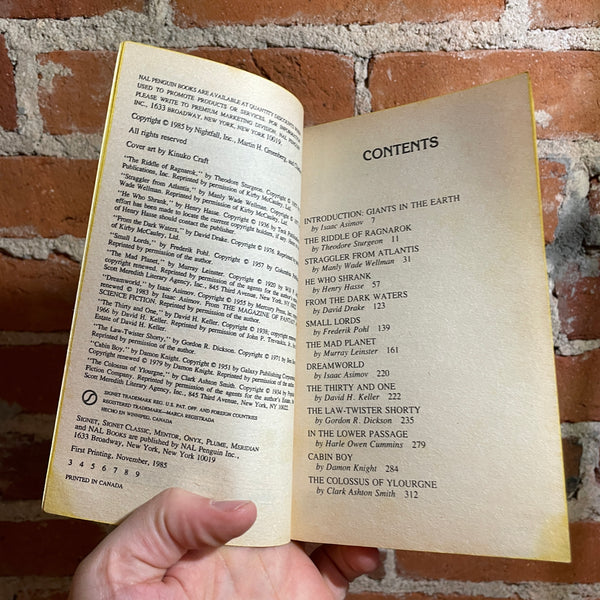 NAL PENGUIN BOOKS ARE AVAILABLE AT QUANTITY DISCOUNTS WHEN
USED TO PROMOTE PRODUCTS OR SERVICES. FOR INFORMATION
PLEASE WRITE TO PREMIUM MARKETING DIVISION, NAL PENGUIN
INC., 1633 BROADWAY, NEW YORK, NEW YORK 10019.
Copyright © 1985 by Nightfall, Inc., Martin H. Greenberg, and
All rights reserved
Cover art by Kinuko Craft
"The Riddle of Ragnarok," by Theodore Sturgeon. Copyright ©
Publications, Inc. Reprinted by permission of Kirby McCauley, Ltd.
"Straggler from Atlantis," by Manly Wade Wellman. Copyright ©
Wade Wellman. Reprinted by permission of Kirby McCauley, Ltd.
"He Who Shrank," by Henry Hasse. Copyright © 1936 by
effort has been made to locate the current copyright holders, if any.
of Henry Hasse should contact the publisher.
"From the Dark Waters," by David Drake. Copyright © 1976. Reprinted
of Kirby McCauley, Ltd.
"Small Lords," by Frederik Pohl. Copyright © 1957 by Columbia
Reprinted by permission of the author.
"The Mad Planet," by Murray Leinster. Copyright © 1920 by
copyright renewed. Reprinted by permission of the agents for the author's
Scott Meredith Literary Agency, Inc., 845 Third Avenue, New York, NY
"Dreamworld," by Isaac Asimov. Copyright © 1955 by Mercury Press, Inc.
renewed © 1983 by Isaac Asimov. From THE MAGAZINE OF FANTASY
SCIENCE FICTION. Reprinted by permission of the author.
"The Thirty and One," by David H. Keller. Copyright © 1938; copyright
1966 by David H. Keller. Reprinted by permission of John P. Trevaskis, Jr.
Estate of David H. Keller.
"The Law-Twister Shorty," by Gordon R. Dickson. Copyright © 1971 by
"Cabin Boy," by Damon Knight. Copyright © 1951 by Galaxy Publishing
Copyright renewed © 1979 by Damon Knight. Reprinted by permission of the author.
"The Colossus of Ylourgne," by Clark Ashton Smith. Copyright © 1934 by
Fiction Company. Reprinted by permission of the agents for the author's Estate,
Scott Meredith Literary Agency, Inc., 845 Third Avenue, New York, NY 10022.
SIGNET TRADEMARK REG. U.S. PAT. OFF. AND FOREIGN COUNTRIES
REGISTERED TRADEMARK—MARCA REGISTRADA
HECHO EN WINNIPEG, CANADA
SIGNET, SIGNET CLASSIC, MENTOR, ONYX, PLUME, MERIDIAN
and NAL BOOKS are published by NAL Penguin Inc.,
1633 Broadway, New York, New York 10019
First Printing, November, 1985
3 4 5 6 7 8 9
PRINTED IN CANADA
CONTENTS
INTRODUCTION: GIANTS IN THE EARTH
by Isaac Asimov 7
THE RIDDLE OF RAGNAROK
by Theodore Sturgeon 11
STRAGGLER FROM ATLANTIS
by Manly Wade Wellman 31
HE WHO SHRANK
by Henry Hasse 57
FROM THE DARK WATERS
by David Drake 123
SMALL LORDS
by Frederik Pohl 139
THE MAD PLANET
by Murray Leinster 161
DREAMWORLD
by Isaac Asimov 220
THE THIRTY AND ONE
by David H. Keller 222
THE LAW-TWISTER SHORTY
by Gordon R. Dickson 235
IN THE LOWER PASSAGE
by Harle Owen Cummins 279
CABIN BOY
by Damon Knight 284
THE COLOSSUS OF YLOURGNE
by Clark Ashton Smith 312